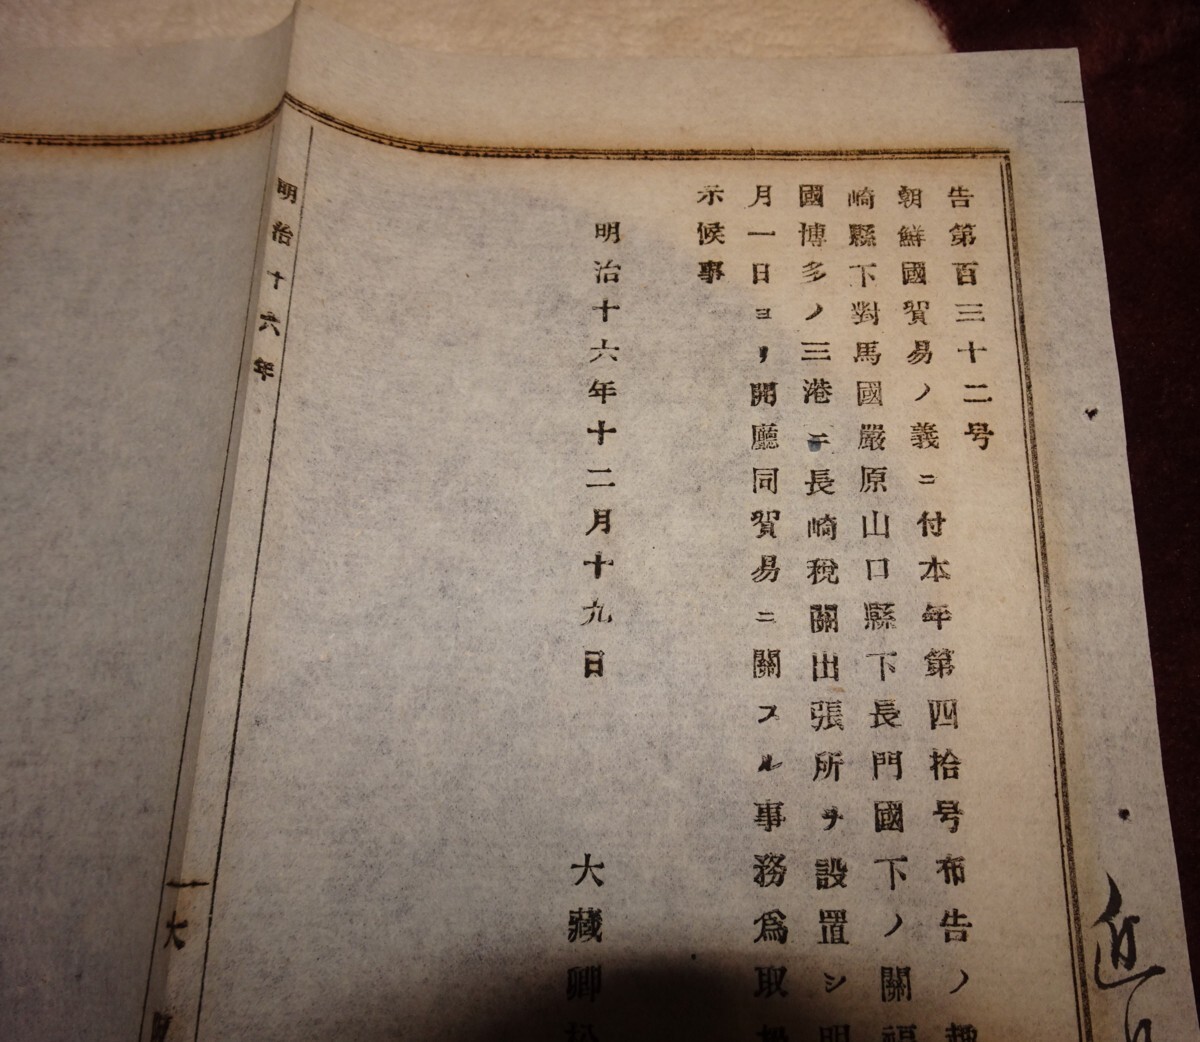 告第百三十二号
朝鮮國貿易ノ義ニ付本年第四拾号布告ノ
崎縣下對馬國嚴原山口縣下長門國下ノ關福
國博多ノ三港ニ長崎稅關出張所ヲ設置シ明
月一日ヨリ開廳同貿易ニ關スル事務爲取
示候事
明治十六年十二月十九日
大藏卿松
明治十六年
大
近